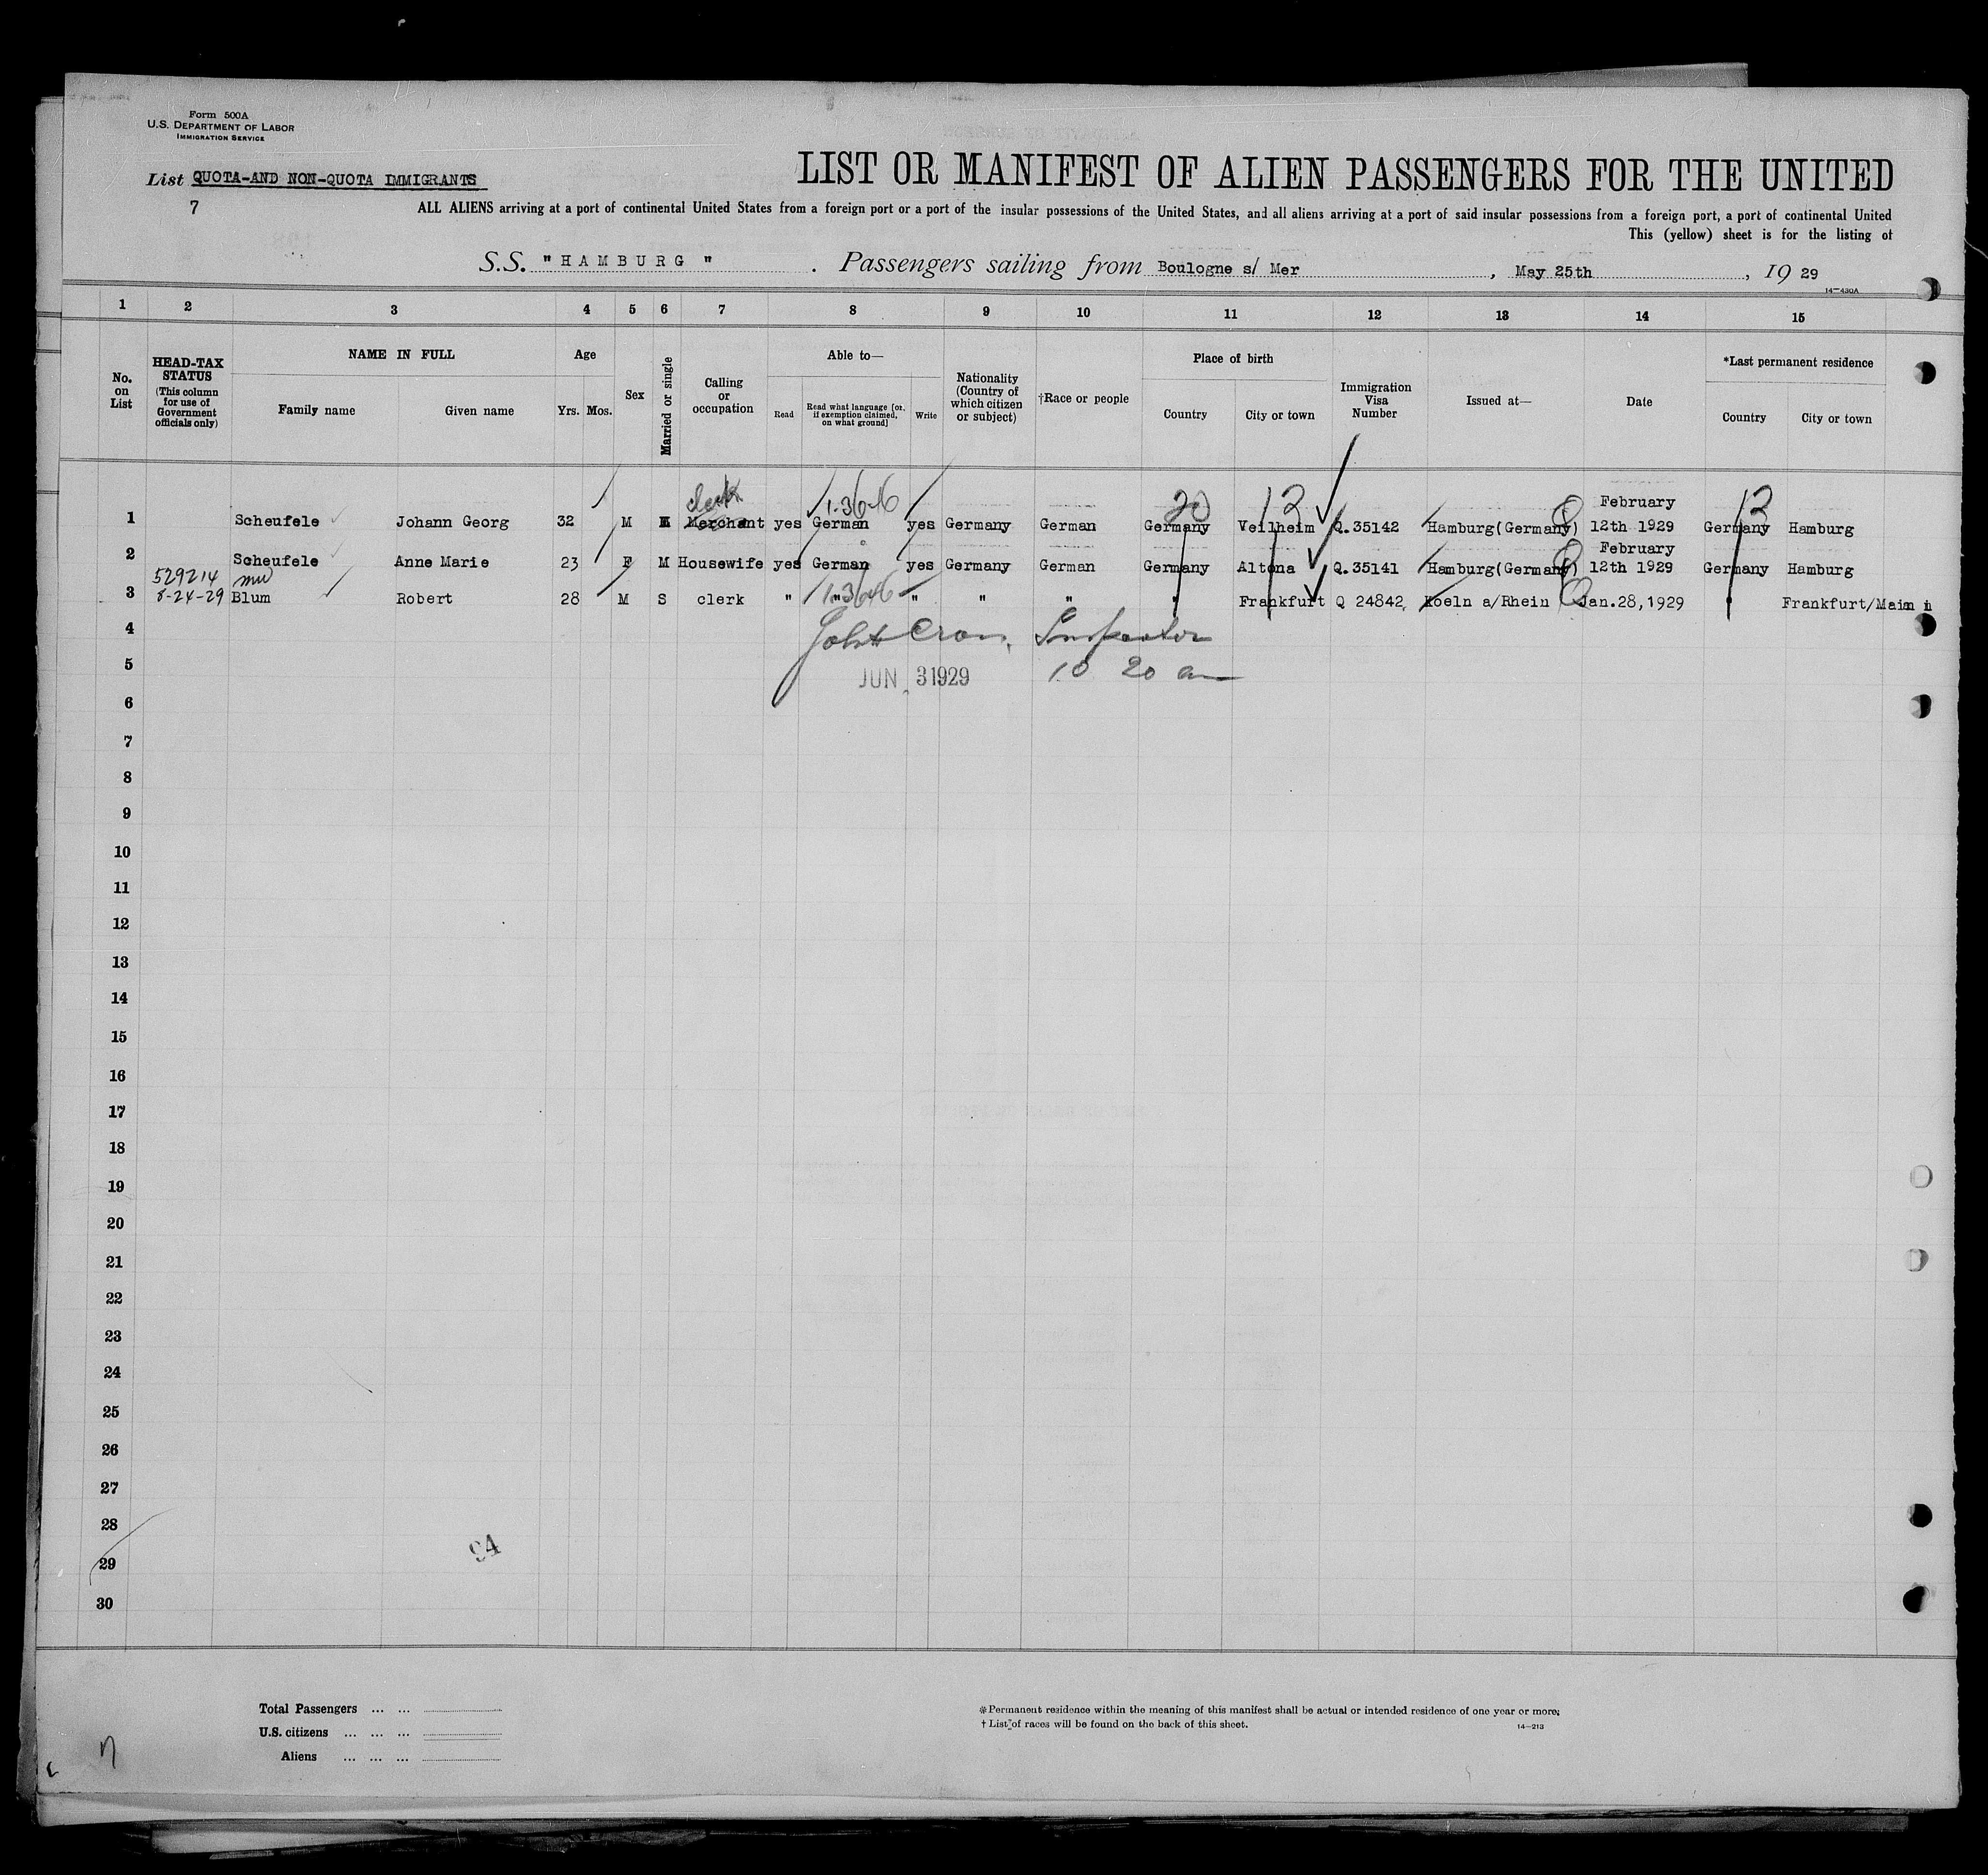 Form 500A
U.S. DEPARTMENT OF LABOR
IMMIGRATION SERVICE
List QUOTA-AND NON-QUOTA IMMIGRANTS
7
LIST OR MANIFEST OF ALIEN PASSENGERS FOR THE UNITED
ALL ALIENS arriving at a port of continental United States from a foreign port or a port of the insular possessions of the United States, and all aliens arriving at a port of said insular possessions from a foreign port, a port of continental United
This (yellow) sheet is for the listing of
S.S. "HAMBURG". Passengers sailing from Boulogne s/ Mer, May 25th, 19 29
14-430A
1 2 3 4 5 6 7 8 9 10 11 12 13 14 15
No. on List
HEAD-TAX STATUS (This column for use of Government officials only)
NAME IN FULL
Family name Given name
Age
Yrs. Mos.
Sex
Married or single
Calling or occupation
Able to—
Read
Read what language [or, if exemption claimed, on what ground]
Write
Nationality (Country of which citizen or subject)
†Race or people
Place of birth
Country City or town
Immigration Visa Number
Issued at—
Date
*Last permanent residence
Country City or town
clerk 1-36-16 20 12 February 12
1 Scheufele Johann Georg 32 M M Merchant yes German yes Germany German Germany Veilheim Q.35142 Hamburg(Germany) 12th 1929 Germany Hamburg
February
2 Scheufele Anne Marie 23 F M Housewife yes German yes Germany German Germany Altona Q.35141 Hamburg(Germany) 12th 1929 Germany Hamburg
529214
3 8-24-29 Blum Robert 28 M S clerk " " " " " " Frankfurt Q 24842 Koeln a/Rhein Jan.28,1929 " Frankfurt/Main
4 Inspector
5 JUN 3 1929 10 20 am
6
7
8
9
10
11
12
13
14
15
16
17
18
19
20
21
22
23
24
25
26
27
28
29
30
94
Total Passengers ... ...
U.S. citizens ... ... ...
Aliens ... ... ...
*Permanent residence within the meaning of this manifest shall be actual or intended residence of one year or more.
†List of races will be found on the back of this sheet.
14-213